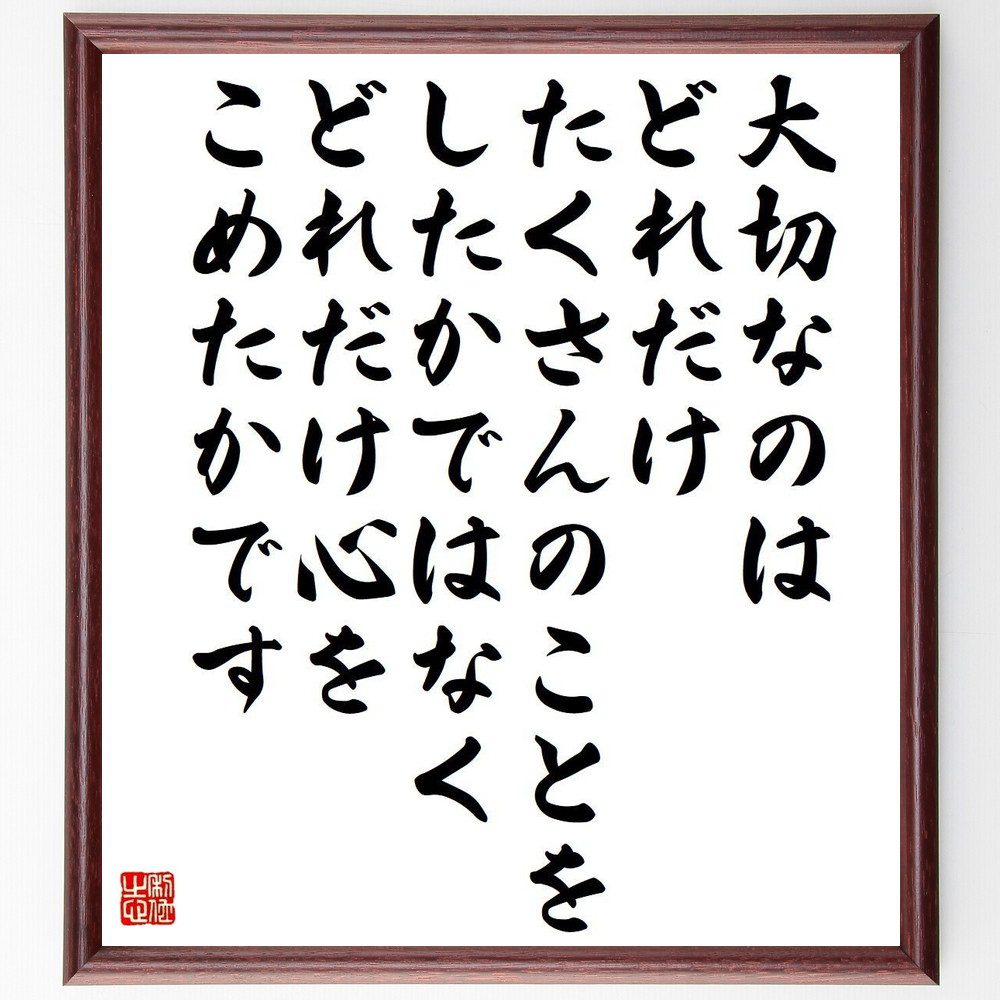 大切なのは
どれだけ
たくさんのことを
したかではなく
どれだけ心を
こめたかです